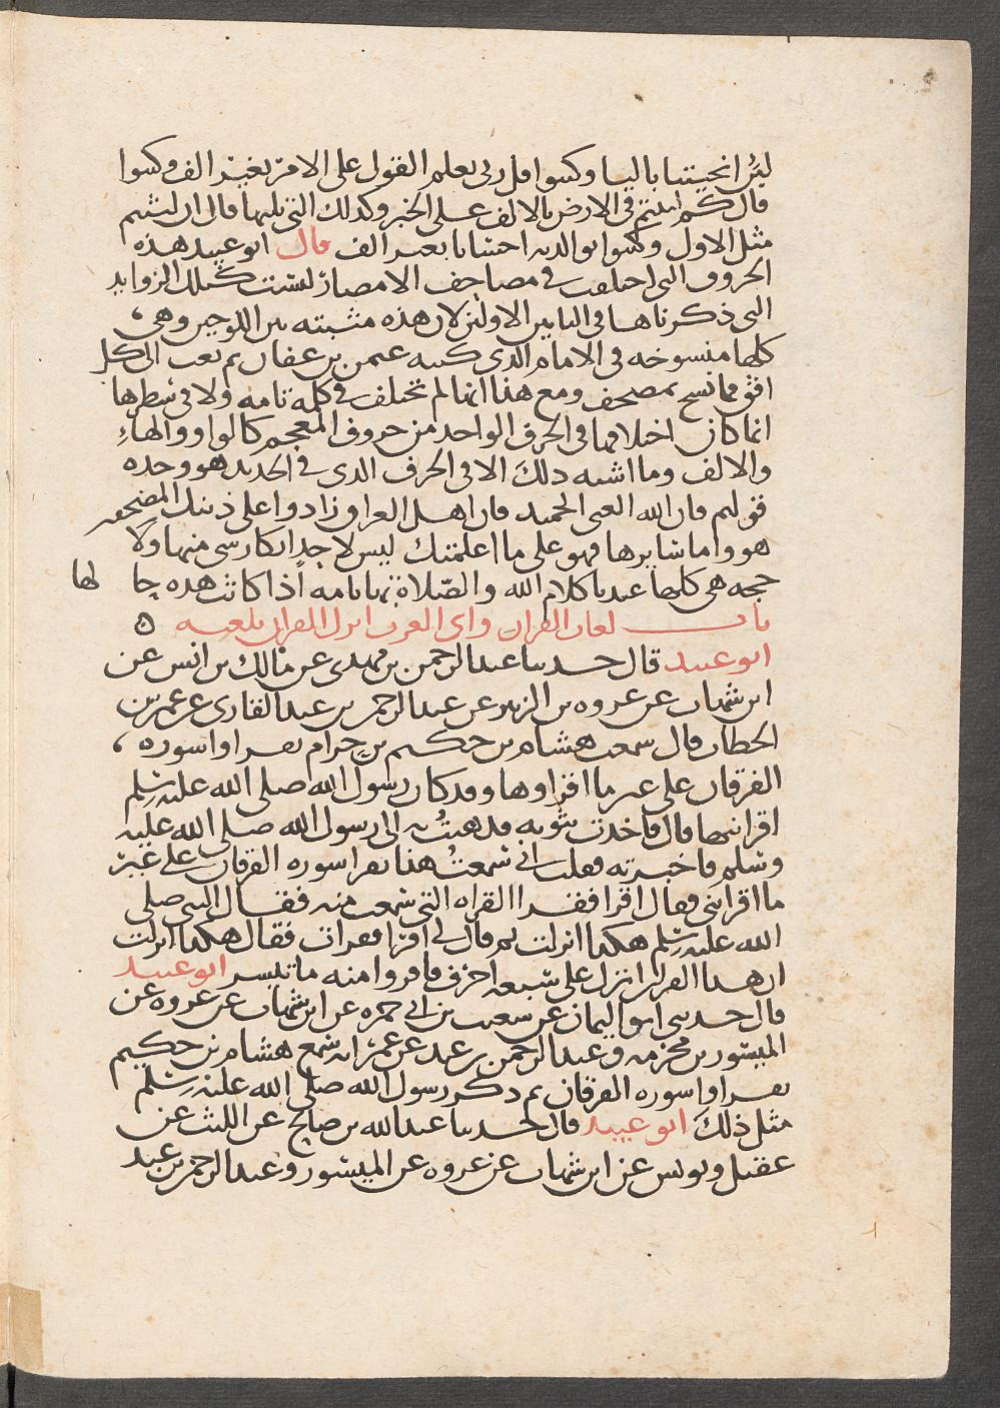 لئن انجيتنا باليا وكتبوا قل ربي يعلم القول على الامر بغير الف وكتبوا
قال كم لبثتم في الارض بالالف على الخبر وكذلك التي يليها قال ان لبثتم
مثل الاول وكتبوا بوالديه احسانا بغير الف قال ابو عبيد هذه
الحروف التي اختلفت في مصاحف الامصار ليست كتلك الزوايد
التي ذكرناها في البابين الاولين لان هذه مثبته بين اللوحين وهي
كلها منسوخه في الامام الذي كتبه عثمن بن عفان ثم بعث الى كل
افق مما نسخ بمصحف ومع هذا انها لم تختلف في كلمه تامه ولا في شطرها
انما كان اختلافها في الحرف الواحد من حروف المعجم كالواو والهاء
والالف وما اشبه ذلك الا في الحرف الذي في الحديد هو وحده
قولهم فان الله الغني الحميد فان اهل العراق زادوا على ذينك المصحفين
هو واما سايرها فهو على ما اعلمتك ليس لاحد انكار شي منها ولا
جحده هي كلها عندنا كلام الله والصلاة بها تامه اذا كانت هذه حا لها
باب لغات القران واي العرب انزل القران بلغته ه
ابو عبيد قال حدثنا عبد الرحمن بن مهدي عن مالك بن انس عن
ابن شهاب عن عروه بن الزبير عن عبد الرحمن بن عبد القاري عن عمر بن
الخطاب قال سمعت هشام بن حكيم بن حزام يقراوا سوره
الفرقان على غير ما اقراوها وقد كان رسول الله صلى الله عليه وسلم
اقرانيها قال فاخذت بثوبه فذهبت به الى رسول الله صلى الله عليه
وسلم فاخبرته فقلت اني سمعت هذا يقرا سوره الفرقان على غير
ما اقراتني فقال اقرا فقرا القراه التي سمعت منه فقال النبي صلى
الله عليه وسلم هكذا انزلت ثم قال لي اقرا فقرات فقال هكذا انزلت
ان هذا القران انزل على سبعه احرف فاقروا منه ما تيسر ابو عبيد
قال حدثني ابو اليمان عن شعيب بن ابي حمزه عن ابن شهاب عن عروه عن
المسور بن مخرمه وعبد الرحمن بن عبد عن عمر انه سمع هشام بن حكيم
يقراوا سوره الفرقان ثم ذكر رسول الله صلى الله عليه وسلم
مثل ذلك ابو عبيد قال حدثنا عبد الله بن صالح عن الليث عن
عقيل ويونس عن ابن شهاب عن عروه عن المسور وعبد الرحمن بن عبد